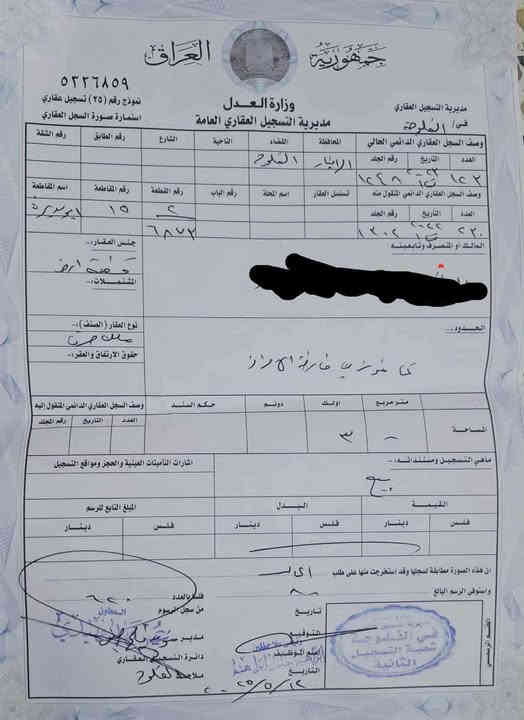 جمهورية العراق
٥٢٢٦٨٥٩
وزارة العدل
مديرية التسجيل العقاري العامة
نموذج رقم (٢٥) تسجيل عقاري
استمارة صورة السجل العقاري
مديرية التسجيل العقاري
في/ الفلوجة
وصف السجل العقاري الدائمي الحالي
المحافظة القضاء الناحية الشارع رقم الطابق رقم الشقة
العدد التاريخ رقم الجلد
الانبار الفلوجة
١٢٣ ١٢٤٨
وصف السجل العقاري الدائمي المنقول منه
تسلسل العقار اسم المحلة رقم الباب رقم القطعة رقم المقاطعة اسم المقاطعة
العدد التاريخ رقم الجلد
٢ ١٥
٢٣٠ ١٣٠٢ ٦٨٧٣
المالك او المتصرف وتابعيته
جنس العقار:-
قطعة ارض
المشتملات:-
الحدود:-
نوع العقار (الصنف):-
ملك صرف
حقوق الارتفاق والعقر:-
كما مؤشر في خارطة الافراز
المساحة
متر مربع اولك دونم حكم السند
وصف السجل العقاري الدائمي المنقول اليه
العدد التاريخ رقم الجلد
٣
ماهي التسجيل ومستنداته:-
بيع
اشارات التأمينات العينية والحجز ومواقع التسجيل
القيمة البدل المبلغ التابع للرسم
فلس دينار فلس دينار فلس دينار
ان هذه الصورة مطابقة لسجلها وقد استخرجت منها على طلب
واستوفي الرسم البالغ
فلسا بالعدد
من سجل الرسوم
تاريخ
التوقيع
اسم الموظف
التاريخ
مدير
دائرة التسجيل العقاري
ملاحظ الفلوجة
٢٠٢٥/٥/١٢
في الفلوجة
شعبة التسجيل
الثانية
الختم الرسمي